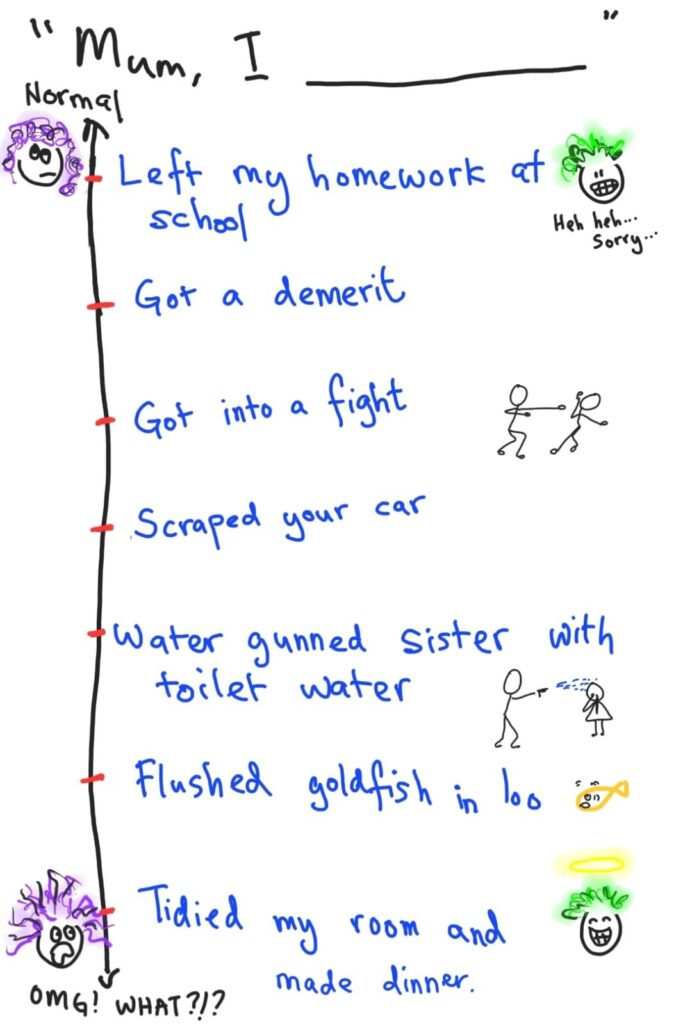 "Mum, I ________"
Normal
Left my homework at
school
Heh heh...
Sorry...
Got a demerit
Got into a fight
Scraped your car
Water gunned sister with
toilet water
Flushed goldfish in loo
Tidied my room and
made dinner.
OMG! WHAT?!?